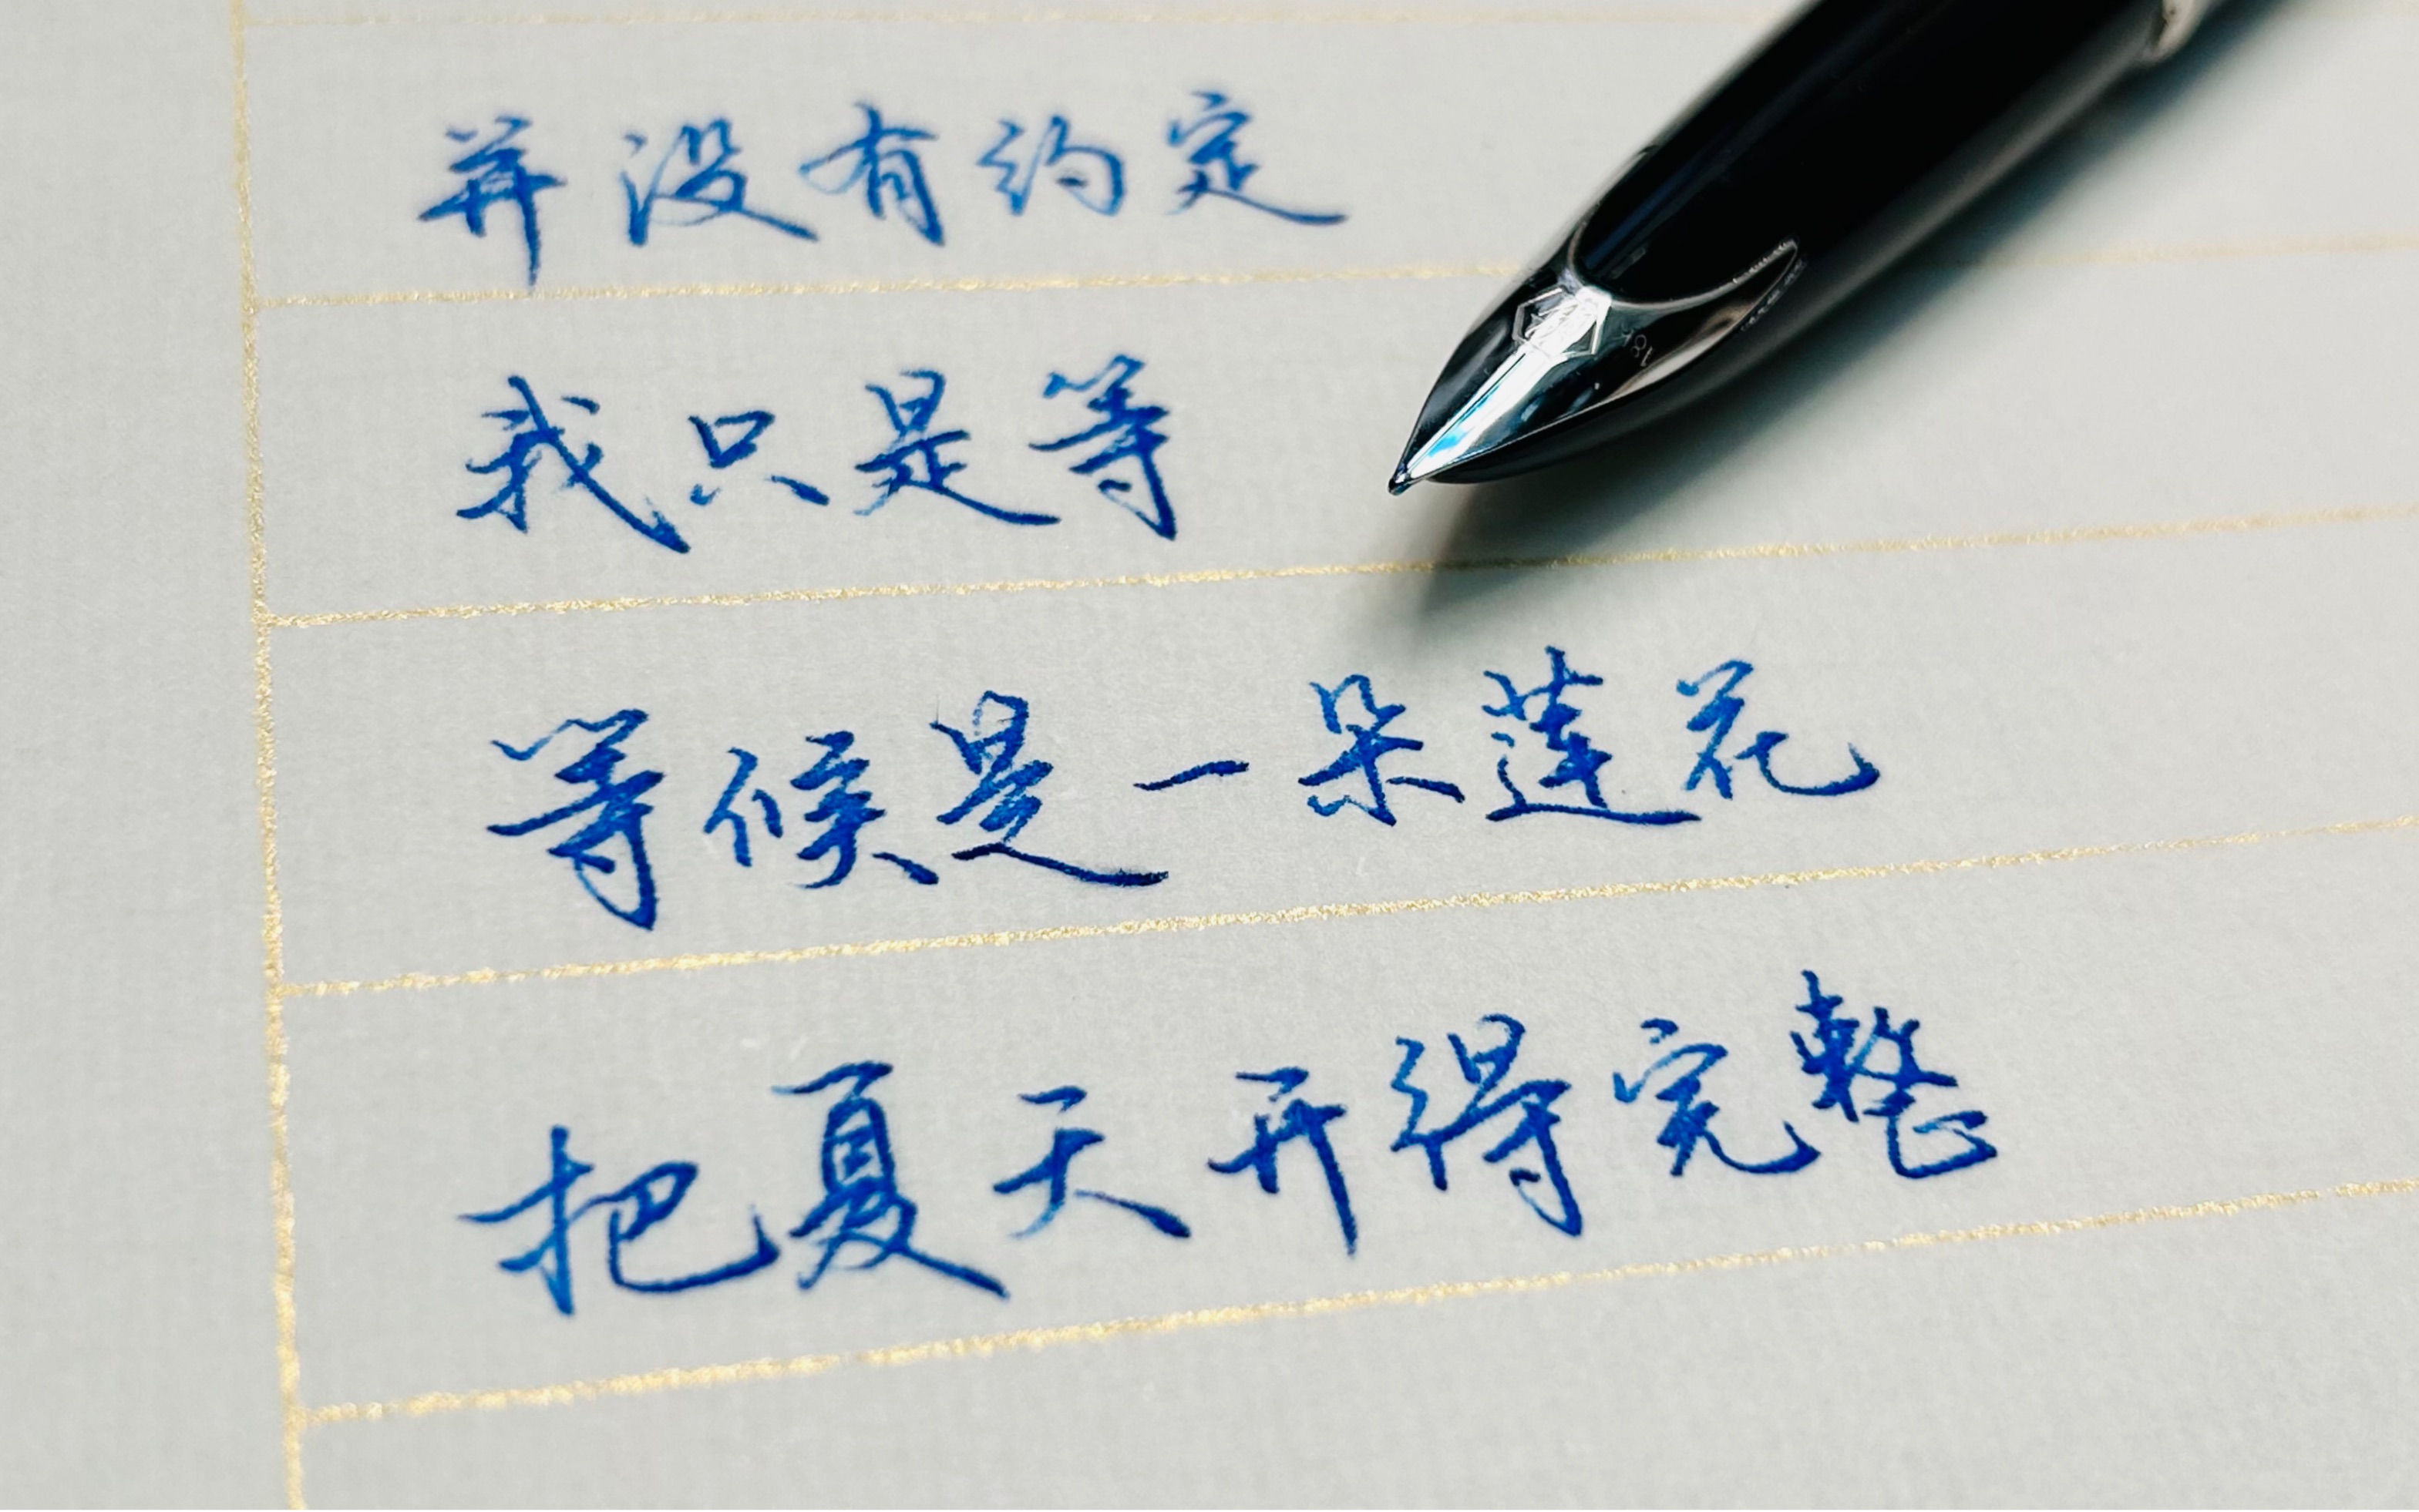 并没有约定
我只是等
等候是一朵莲花
把夏天开得完整
18K